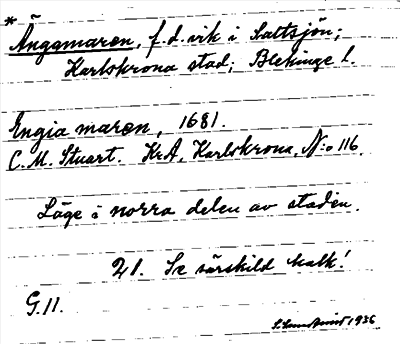 *
Ängsmaren, f.d. vik i Saltsjön;
Karlskrona stad; Blekinge l.
Engia maren, 1681.
C.M. Stuart. KrA, Karlskrona, N:o 116.
Läge i norra delen av staden.
21. Se särskild kalk!
G.11.
S. Lundqvist 1936